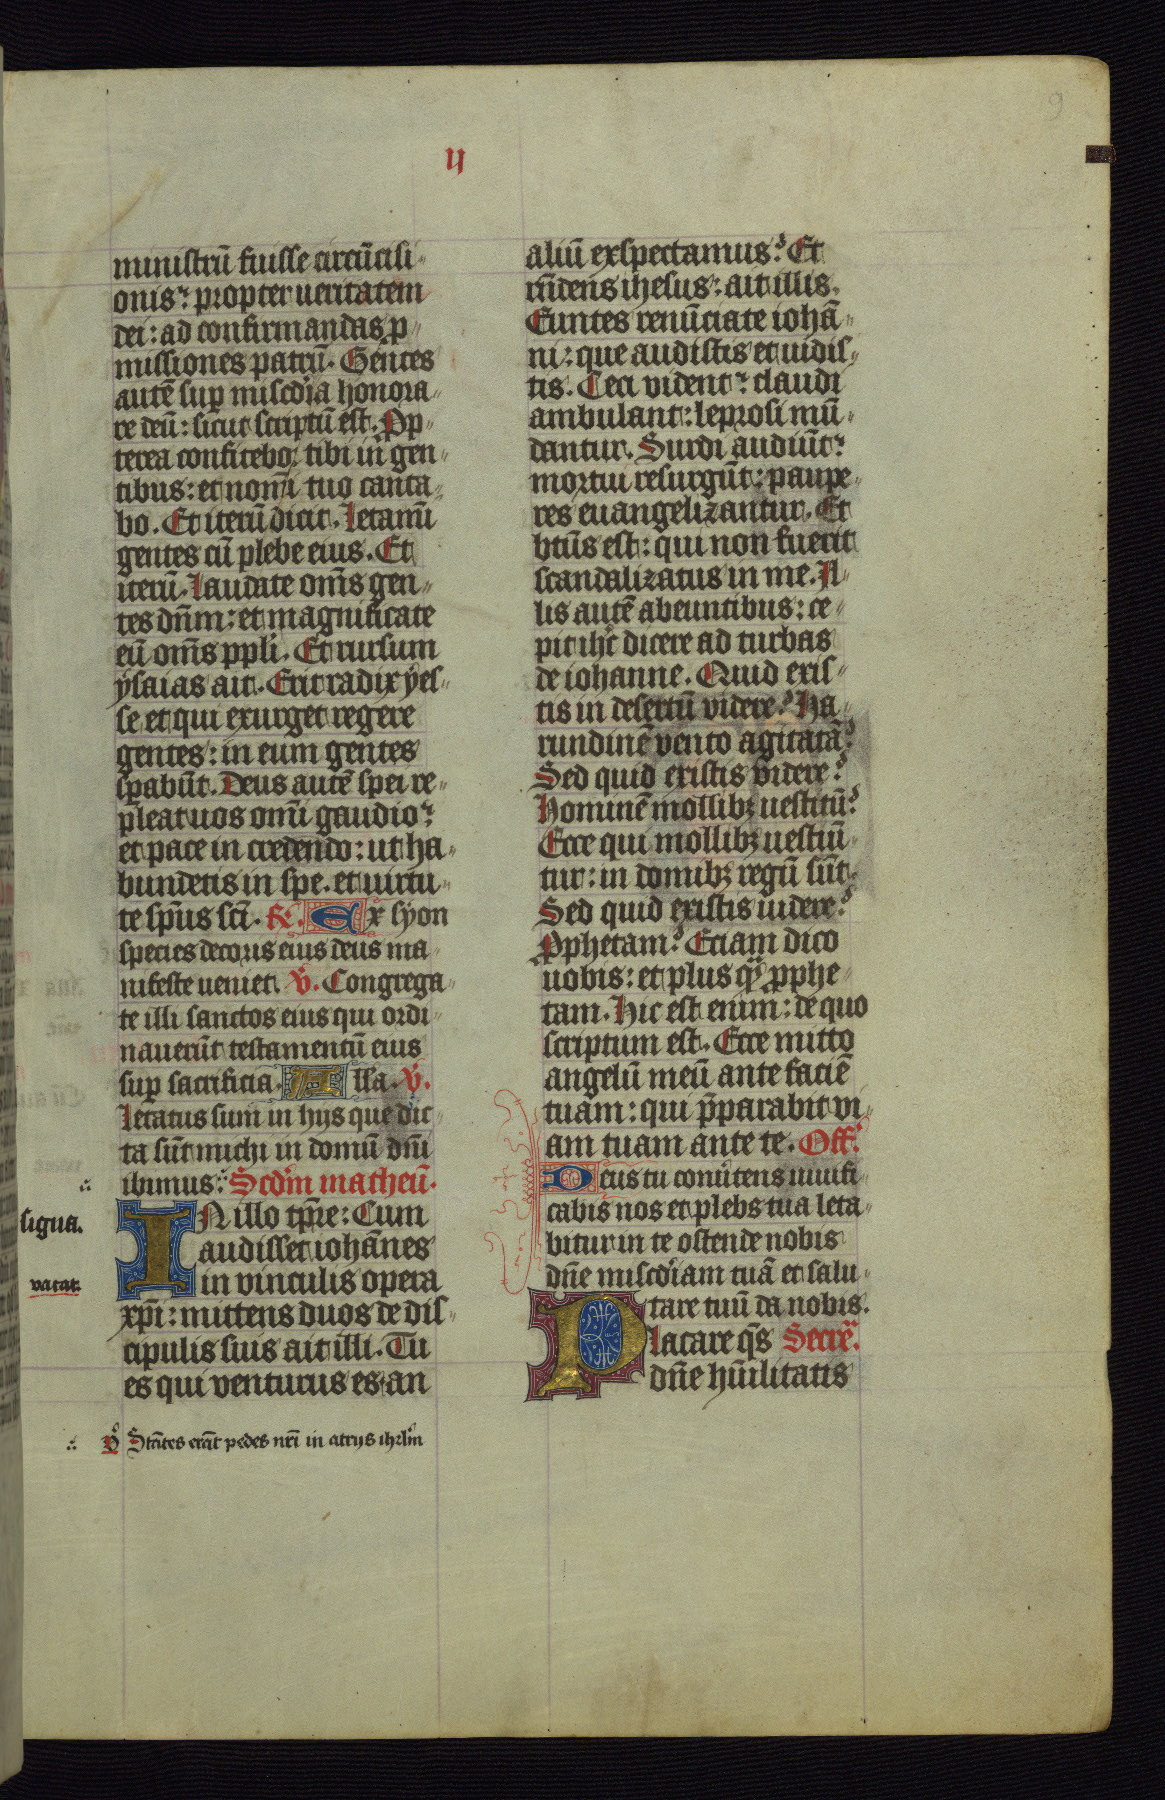 9
ij
ministrũ fuisse circũcisi
onis: propter ueritatem
dei: ad confirmandas p
missiones patrũ. Gentes
autẽ sup miscd̾ia honora
re deũ: sicut scriptũ est. Pp
terea confitebor tibi in gen
tibus: et nom̃i tuo canta
bo. Et iterũ dicit. Letamĩ
gentes cũ plebe eius. Et
iterũ. Laudate om̃s gen
tes dñm: et magnificate
eũ om̃s ppli. Et rursum
ysaias ait. Erit radix yes
se et qui exurget regere
gentes: in eum gentes
spabũt. Deus autẽ spei re
pleat uos omĩ gaudio:
et pace in credendo: ut ha
bundetis in spe. et uirtu
te sp̃us sc̃i. R̃. Ex syon
species decoris eius deus ma
nifeste ueniet. V̾. Congrega
te illi sanctos eius qui ordi
nauerũt testamentũ eius
sup sacrificia. Alla. V̾.
Letatus sum in hijs que dic
ta sũt michi in domũ dñi
ibimus: Scd̾m matheũ.
IN illo tp̃re: Cum
audisset iohãnes
in vinculis opera
xp̃i: mittens duos de dis
cipulis suis ait illi. Tu
es qui venturus es an
signa.
vacat.
V̾ Stãtes erãt pedes nr̃i in atrijs ihrl̾m
aliũ exspectamus? Et
rñdens ihesus: ait illis.
Euntes renũciate iohã
ni: que audistis et uidis
tis. Ceci vident: claudi
ambulant: leprosi mũ
dantur. Surdi audiũt:
mortui resurgũt: paupe
res euangelizantur. Et
bt̃us est: qui non fuerit
scandalizatus in me. Il
lis autẽ abeuntibus: ce
pit ihc̃ dicere ad turbas
de iohanne. Quid exis
tis in desertũ videre? Ha
rundinẽ vento agitatã?
Sed quid existis videre?
Hominẽ mollibꝫ uestitũ?
Ecce qui mollibꝫ uestiũ
tur: in domibꝫ regũ sũt.
Sed quid existis uidere?
Pphetam? Eciam dico
uobis: et plus q̃ pphe
tam. Hic est enim: de quo
scriptum est. Ecce mitto
angelũ meũ ante faciẽ
tuam: qui p̃parabit vi
am tuam ante te. Off̾.
Deus tu conu̾tens uiuifi
cabis nos et plebs tua leta
bitur in te ostende nobis
dñe miscd̾iam tuã et salu
tare tuũ da nobis.
Placare q̃s Secre̾.
dñe hũilitatis